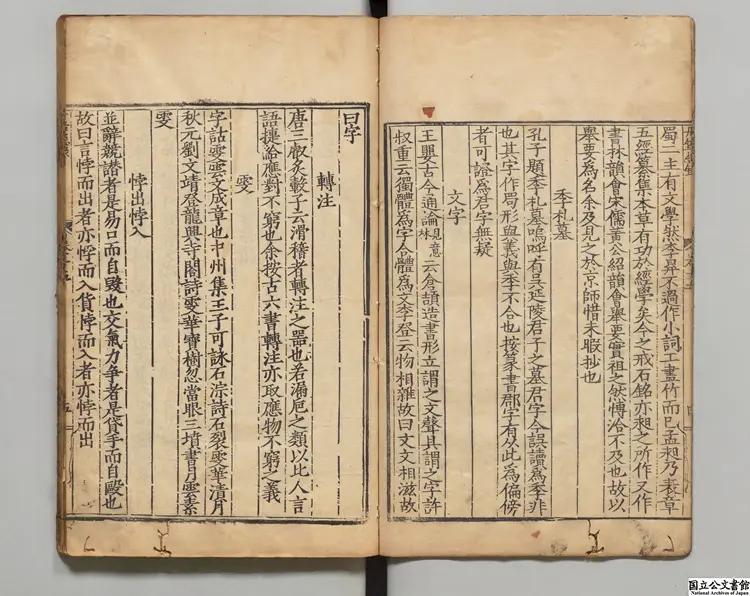 蜀二主有文學然李昇不過作小詞工畫竹而已孟昶乃表章
五經纂集本草有功於經學矣今之戒石銘亦昶之所作又作
書林韻會宋儒黃公紹韻會舉要實祖之然博洽不及也故以
舉要為名余及見之於京師惜未暇抄也
季札墓
孔子題季札墓嗚呼有吳延陵君子之墓君字今誤讀為季非
也其字作局形與義與季不合也按篆書郡字有从此為偏傍
者可證為君字無疑
文字
王嬰古今通論見意林云倉頡造書形立謂之文聲具謂之字許
叔重云獨體為字合體為文李登云物相雜故曰文文相滋故
曰字
轉注
唐三教炙轂子云滑稽者轉注之器也若漏巵之類以此人言
語捷給應對不窮也余按古六書轉注亦取應物不窮之義
雯
字詁雯雲文成章也中州集王子可詠石淙詩石裂雯華漬月
秋元劉文靖登龍興寺閣詩雯華寶樹忽當眼三墳書月雲素
雯
悖出悖入
並辭競譖者是易口而自毀也交氣力爭者是貸手而自毆也
故曰言悖而出者亦悖而入貨悖而入者亦悖而出
国立公文書館
National Archives of Japan